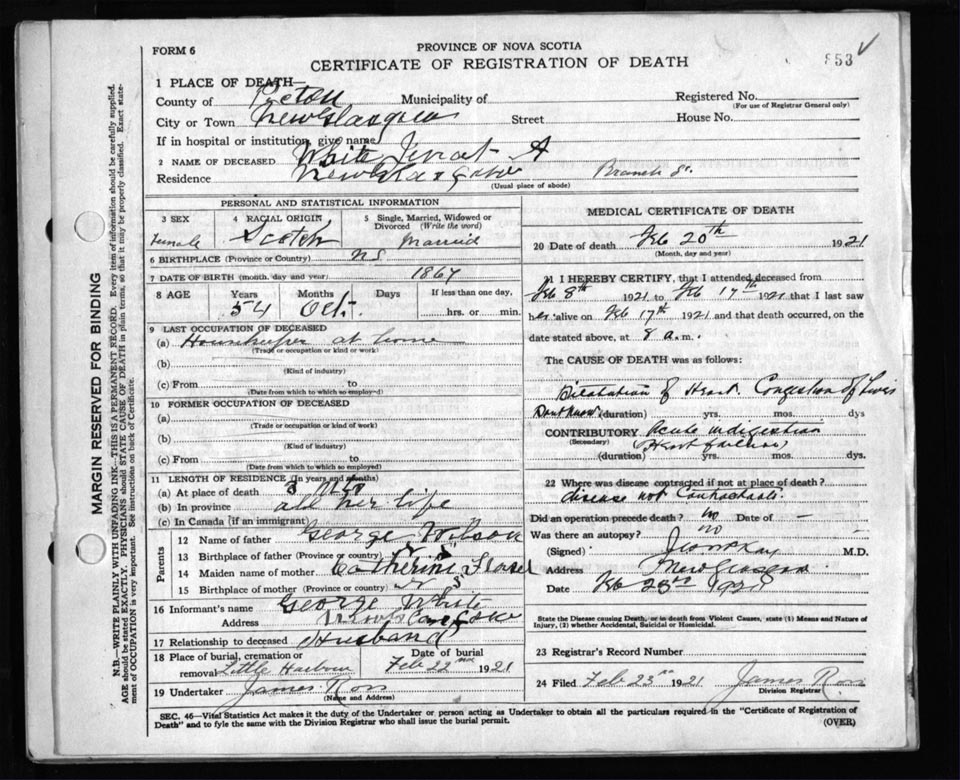 FORM 6
PROVINCE OF NOVA SCOTIA
CERTIFICATE OF REGISTRATION OF DEATH
853
1 PLACE OF DEATH—
County of Pictou Municipality of
Registered No.
(For use of Registrar General only)
City or Town New Glasgow Street House No.
If in hospital or institution, give name
2 NAME OF DECEASED White Jennet A
Residence New Glasgow Branch St.
(Usual place of abode)
PERSONAL AND STATISTICAL INFORMATION
3 SEX Female
4 RACIAL ORIGIN Scotch
5 Single, Married, Widowed or Divorced (Write the word) Married
6 BIRTHPLACE (Province or Country) N S
7 DATE OF BIRTH (month, day and year) 1867
8 AGE Years Months Days If less than one day,
54 Oct. hrs. or min.
9 LAST OCCUPATION OF DECEASED
(a) Housekeeper at home
(Trade or occupation or kind of work)
(b)
(Kind of industry)
(c) From to
(Date from which to which so employed)
10 FORMER OCCUPATION OF DECEASED
(a)
(Trade or occupation or kind of work)
(b)
(Kind of industry)
(c) From to
(Date from which to which so employed)
11 LENGTH OF RESIDENCE (In years and months)
(a) At place of death 3
(b) In province all her life
(c) In Canada (if an immigrant)
Parents
12 Name of father George Wilson
13 Birthplace of father (Province or country)
14 Maiden name of mother Catherine
15 Birthplace of mother (Province or country) N S
16 Informant's name George White
Address New Glasgow
17 Relationship to deceased Husband
18 Place of burial, cremation or removal Little Harbour
Date of burial Feb 22nd 1921
19 Undertaker James Ross
(Name and Address)
MEDICAL CERTIFICATE OF DEATH
20 Date of death Feb 20th 1921
(Month, day and year)
21 I HEREBY CERTIFY, that I attended deceased from
Feb 8th 1921 to Feb 17th 1921 that I last saw
her alive on Feb 17th 1921 and that death occurred, on the
date stated above, at 8 a.m.
The CAUSE OF DEATH was as follows:
Dilatation of Heart. Congestion of Liver
Dont Know (duration) yrs. mos. dys
CONTRIBUTORY Acute indigestion
(Secondary) Heart failure
(duration) yrs. mos. dys.
22 Where was disease contracted if not at place of death?
disease not Contractable
Did an operation precede death? no Date of —
Was there an autopsy? no
(Signed) M.D.
Address New Glasgow
Date Feb 23rd 1921
State the Disease causing Death, or in death from Violent Causes, state (1) Means and Nature of Injury, (2) whether Accidental, Suicidal or Homicidal.
23 Registrar's Record Number
24 Filed Feb 23rd 1921 James Ross
Division Registrar
SEC. 46—Vital Statistics Act makes it the duty of the Undertaker or person acting as Undertaker to obtain all the particulars required in the "Certificate of Registration of
Death" and to fyle the same with the Division Registrar who shall issue the burial permit.
(OVER)
MARGIN RESERVED FOR BINDING
N.B.—WRITE PLAINLY WITH UNFADING INK—THIS IS A PERMANENT RECORD. Every item of information should be carefully supplied.
AGE should be stated EXACTLY. PHYSICIANS should STATE CAUSE OF DEATH in plain terms, so that it may be properly classified. Exact statement of OCCUPATION is very important. See instructions on back of Certificate.